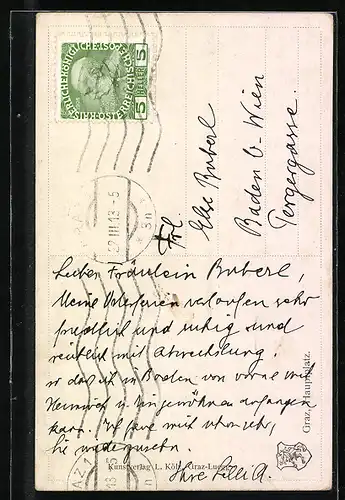 KAISERLICHE KÖNIGLICHE ÖSTERREICHISCHE POST
5 HELLER 5
GRAZ 1
22 III 13 - 5
* 3n *
Frl.
Else Buberl
Baden b. Wien
Pergergasse.
Liebes Fräulein Buberl,
Meine Osterferien verlaufen sehr
friedlich und ruhig und
reichlich mit Abwechslung,
so daß ich in Baden von vorne mit
Heimweh u. Ungewöhnen anfangen
kann. Ich freue mich schon sehr,
Sie wiederzusehen.
Ihre Lilli A.
Kunstverlag L. Kölz, Graz-Luegg.
Graz, Hauptplatz.